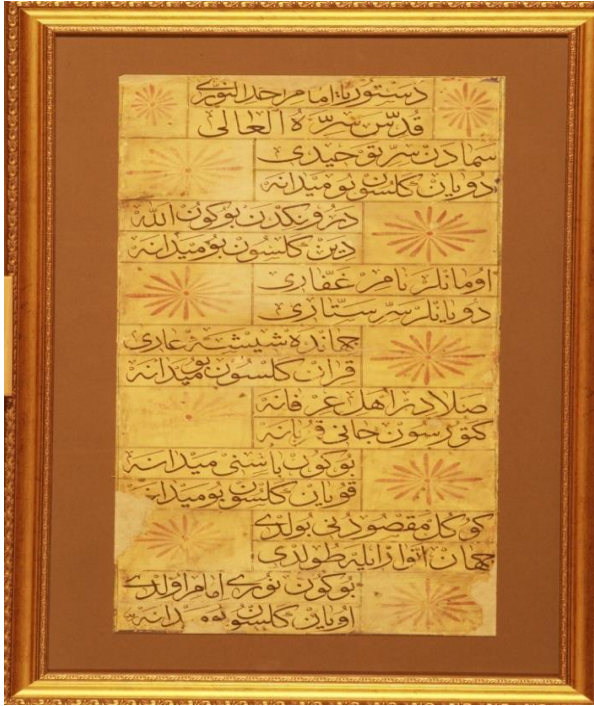 دستور یا امام احد النوری
قدس سره العالی
سمادن سر توحیدی
دویان کلسون بو میدانه
درونکدن بوکون الله
دین کلسون بو میدانه
اومانلر نام غفاری
دویانلر سر ستاری
جهانده شیشۀ عاری
قران کلسون بو میدانه
صلادر اهل عرفانه
کتورسون جانی قربانه
بوکون باشنی میدانه
قویان کلسون بو میدانه
کوکل مقصودنی بولدی
جهان انوار ایله طولدی
بوکون نوری امام اولدی
اویان کلسون بو میدانه